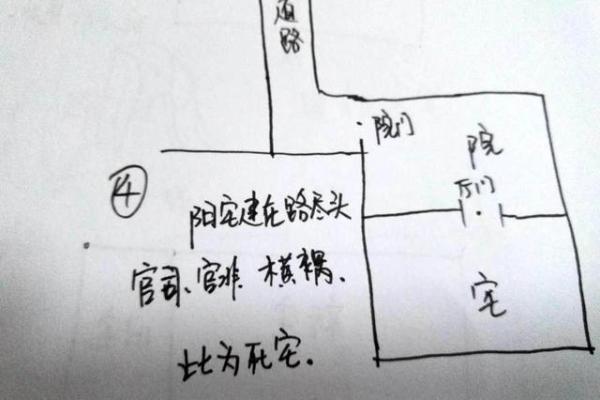 道路
院门
院
④
厅门
阳宅建在路尽头
官司、官非、横祸.
宅
此为死宅.